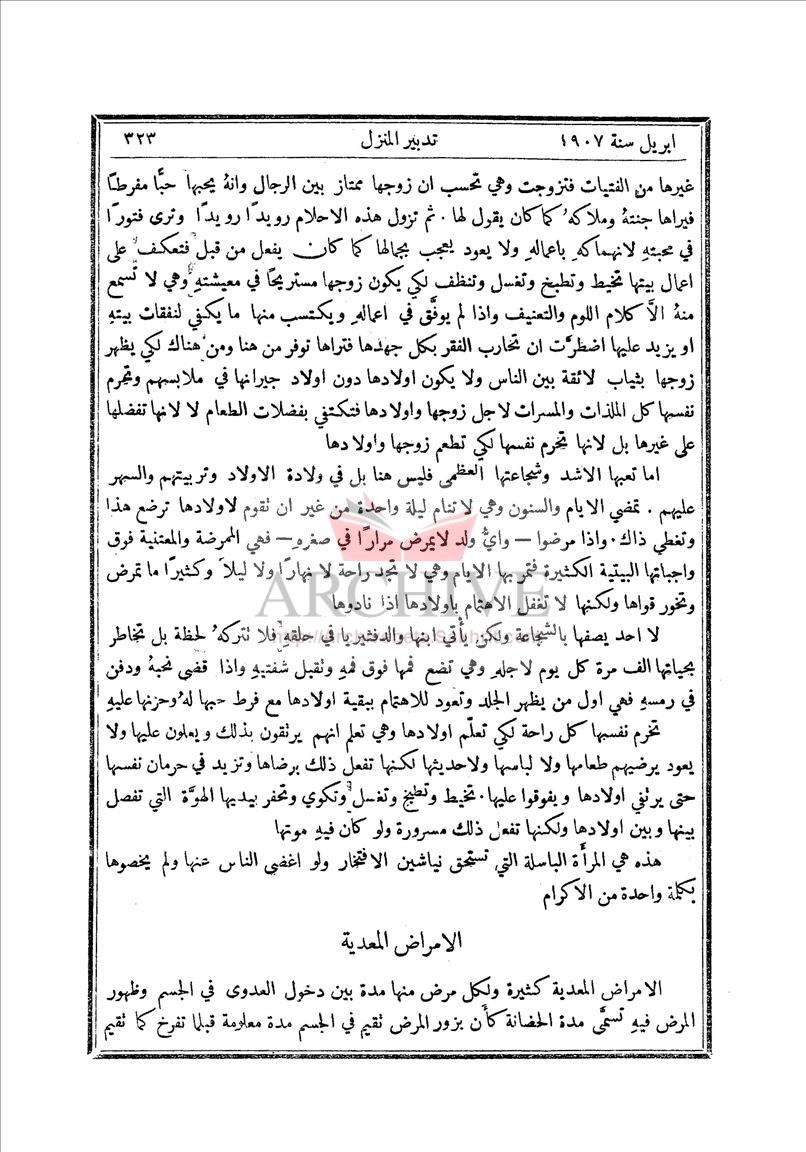 ابريل سنة ١٩٠٧ تدبير المنزل ٣٢٣
غيرها من الفتيات فتزوجت وهي تحسب ان زوجها ممتاز بين الرجال وانهُ يحبها حبًّا مفرطًا
فيراها جنتهُ وملاكهُ كما كان يقول لها . ثم تزول هذه الاحلام رويدًا رويدًا وترى فتورًا
في محبتهِ لانهماكهِ باعمالهِ ولا يعود يعجب بجمالها كما كان يفعل من قبل فتعكف على
اعمال بيتها تخيط وتطبخ وتغسل وتنظف لكي يكون زوجها مستريحًا في معيشتهِ وهي لا تسمع
منهُ الاَّ كلام اللوم والتعنيف واذا لم يوفَّق في اعمالهِ ويكتسب منها ما يكفي لنفقات بيتهِ
او يزيد عليها اضطرَّت ان تحارب الفقر بكل جهدها فتراها توفر من هنا ومن هناك لكي يظهر
زوجها بثياب لائقة بين الناس ولا يكون اولادها دون اولاد جيرانها في ملابسهم وتحرم
نفسها كل الملذات والمسرات لاجل زوجها واولادها فتكتفي بفضلات الطعام لا لانها تفضلها
على غيرها بل لانها تحرم نفسها لكي تطعم زوجها واولادها
اما تعبها الاشد وشجاعتها العظمى فليس هنا بل في ولادة الاولاد وتربيتهم والسهر
عليهم . تمضي الايام والسنون وهي لا تنام ليلة واحدة من غير ان تقوم لاولادها ترضع هذا
وتغطي ذاك . واذا مرضوا — وايُّ ولد لا يمرض مرارًا في صغرهِ — فهي الممرضة والمعتنية فوق
واجباتها البيتية الكثيرة فتمر بها الايام وهي لا تجد راحة لا نهارًا ولا ليلاً وكثيرًا ما تمرض
وتخور قواها ولكنها لا تغفل الاهتمام باولادها اذا نادوها
لا احد يصفها بالشجاعة ولكن يأتي ابنها والدفثيريا في حلقهِ فلا تتركهُ لحظة بل تخاطر
بحياتها الف مرة كل يوم لاجلهِ وهي تضع فمها فوق فمهِ وتقبل شفتيهِ واذا قضى نحبهُ ودفن
في رمسهِ فهي اول من يظهر الجلد وتعود للاهتمام ببقية اولادها مع فرط حبها لهُ وحزنها عليهِ
تحرم نفسها كل راحة لكي تعلّم اولادها وهي تعلم انهم يرتقون بذلك ويعلون عليها ولا
يعود يرضيهم طعامها ولا لباسها ولا حديثها لكنها تفعل ذلك برضاها وتزيد في حرمان نفسها
حتى يرتقي اولادها ويفوقوا عليها . تخيط وتطبخ وتغسل وتكوي وتحفر بيديها الهوَّة التي تفصل
بينها وبين اولادها ولكنها تفعل ذلك مسرورة ولو كان فيهِ موتها
هذه هي المرأة الباسلة التي تستحق نياشين الافتخار ولو اغضى الناس عنها ولم يخصوها
بكلمة واحدة من الاكرام
الامراض المعدية
الامراض المعدية كثيرة ولكل مرض منها مدة بين دخول العدوى في الجسم وظهور
المرض فيهِ تسمَّى مدة الحضانة كأن بزور المرض تقيم في الجسم مدة معلومة قبلما تفرخ كما تقيم
ARCHIVE